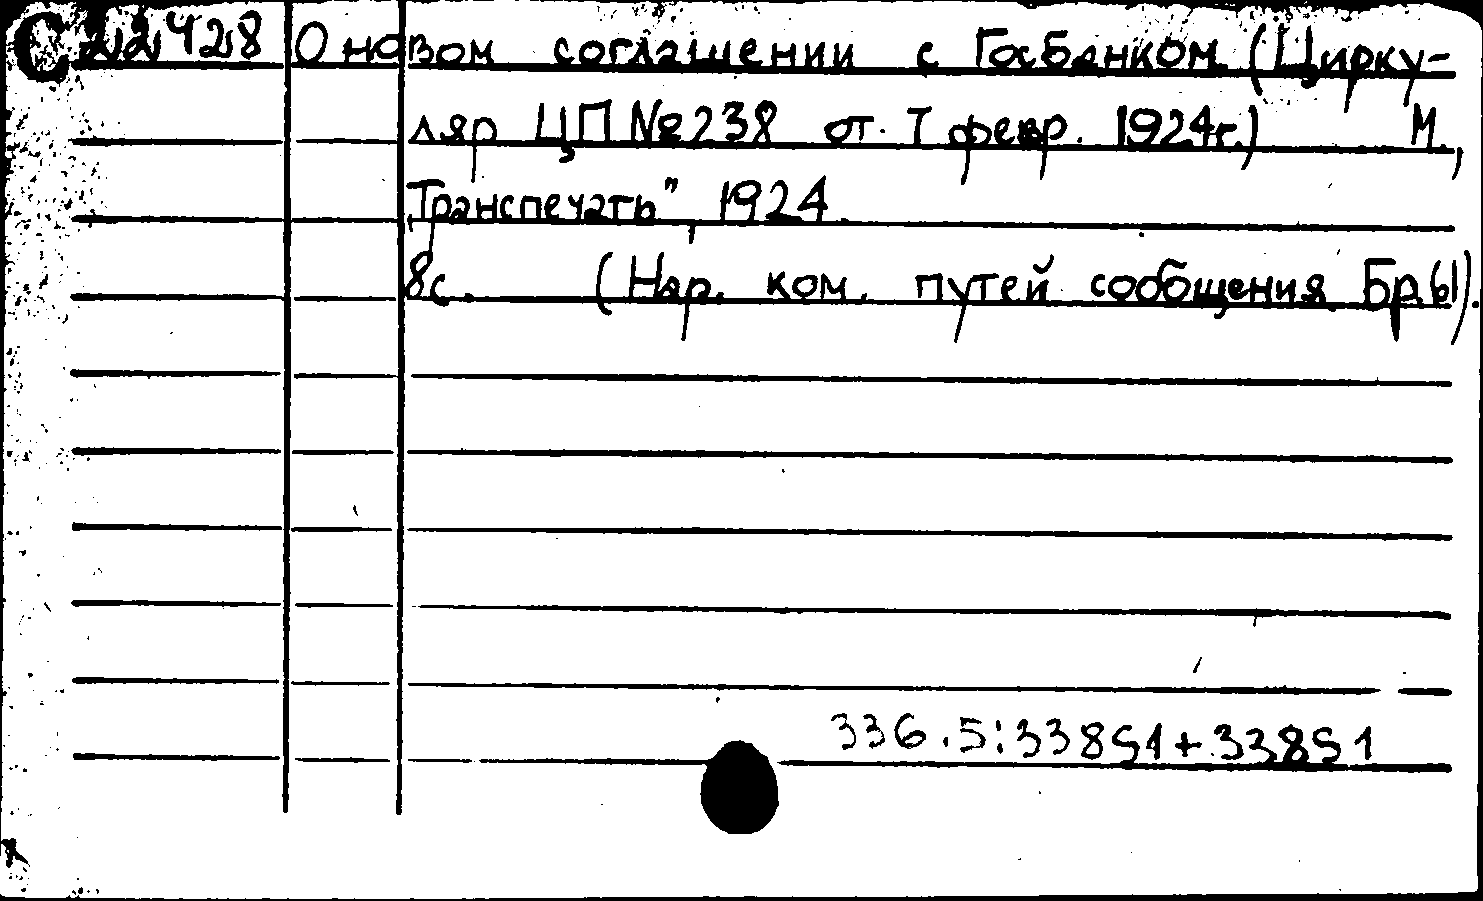 С 22428 О новом соглашении с Госбанком (Цирку-
ляр ЦП № 238 от. 7 февр. 1924 г.) М.,
Транспечать", 1924.
8 с. (Нар. ком. путей сообщения
336.5:33851+33851